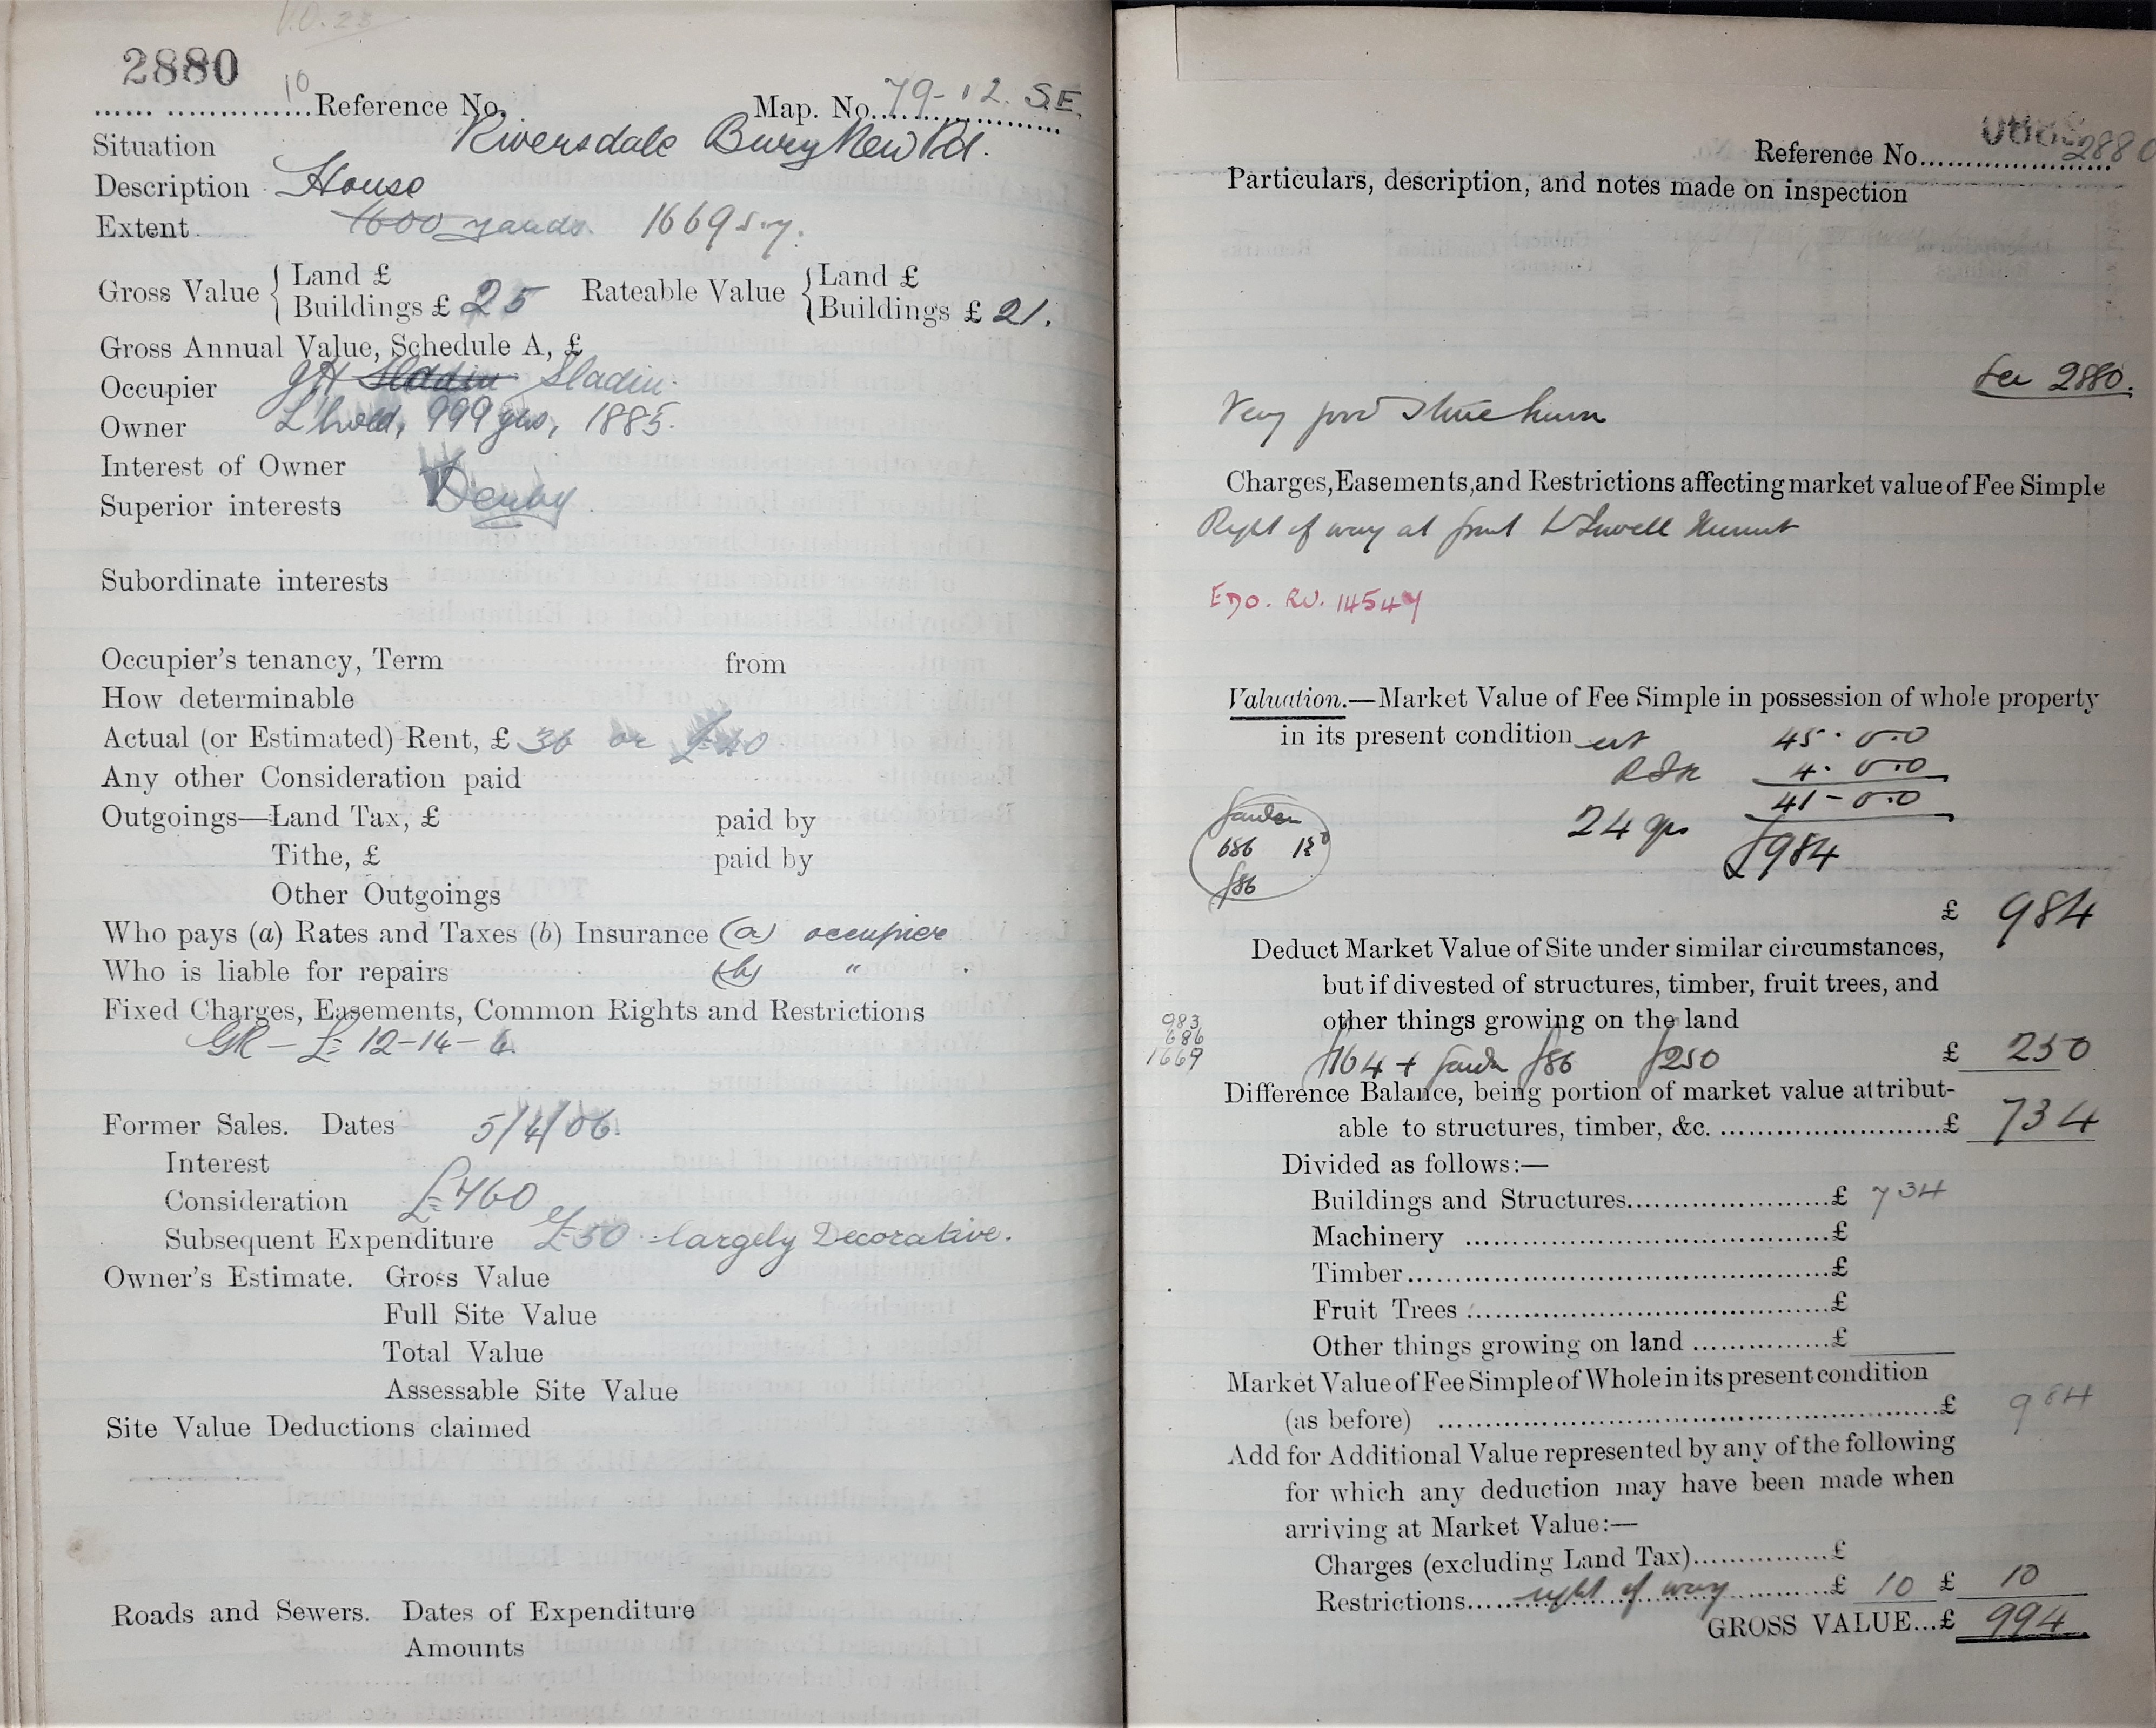 V.O. 23
2880
10
Reference No. Map. No. 79-12. S.E.
Situation Riversdale Bury New Rd.
Description House
Extent 1600 yards. 1669 s.y.
Gross Value { Land £ Rateable Value { Land £
Buildings £ 25 Buildings £ 21.
Gross Annual Value, Schedule A, £
Occupier Sladin
Owner L'hold, 999 yrs, 1885.
Interest of Owner
Superior interests Denby
Subordinate interests
Occupier's tenancy, Term from
How determinable
Actual (or Estimated) Rent, £ 36 or £40
Any other Consideration paid
Outgoings—Land Tax, £ paid by
Tithe, £ paid by
Other Outgoings
Who pays (a) Rates and Taxes (b) Insurance (a) occupier
Who is liable for repairs (b) "
Fixed Charges, Easements, Common Rights and Restrictions
GR — £12-14-6.
Former Sales. Dates 5/4/06.
Interest
Consideration £760
Subsequent Expenditure £50 - largely Decorative.
Owner's Estimate. Gross Value
Full Site Value
Total Value
Assessable Site Value
Site Value Deductions claimed
Roads and Sewers. Dates of Expenditure
Amounts
Reference No. 2880
Particulars, description, and notes made on inspection
2880.
Very good
Charges, Easements, and Restrictions affecting market value of Fee Simple
Right of way at front
EDO. RV. 14547
Valuation.—Market Value of Fee Simple in possession of whole property
in its present condition est 45.0.0
4.0.0
41-0.0
24 yrs £984
Garden
686
£86
£ 984
Deduct Market Value of Site under similar circumstances,
but if divested of structures, timber, fruit trees, and
other things growing on the land
983
686
1669
£164 + Garden £86 £250 £ 250
Difference Balance, being portion of market value attribut-
able to structures, timber, &c. £ 734
Divided as follows:—
Buildings and Structures £ 734
Machinery £
Timber £
Fruit Trees £
Other things growing on land £
Market Value of Fee Simple of Whole in its present condition
(as before) £ 984
Add for Additional Value represented by any of the following
for which any deduction may have been made when
arriving at Market Value:—
Charges (excluding Land Tax) £
Restrictions right of way £ 10 £ 10
GROSS VALUE...£ 994